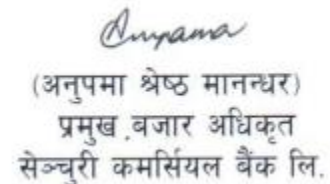 Anupama
(अनुपमा श्रेष्ठ मानन्धर)
प्रमुख बजार अधिकृत
सेञ्चुरी कमर्सियल बैंक लि.